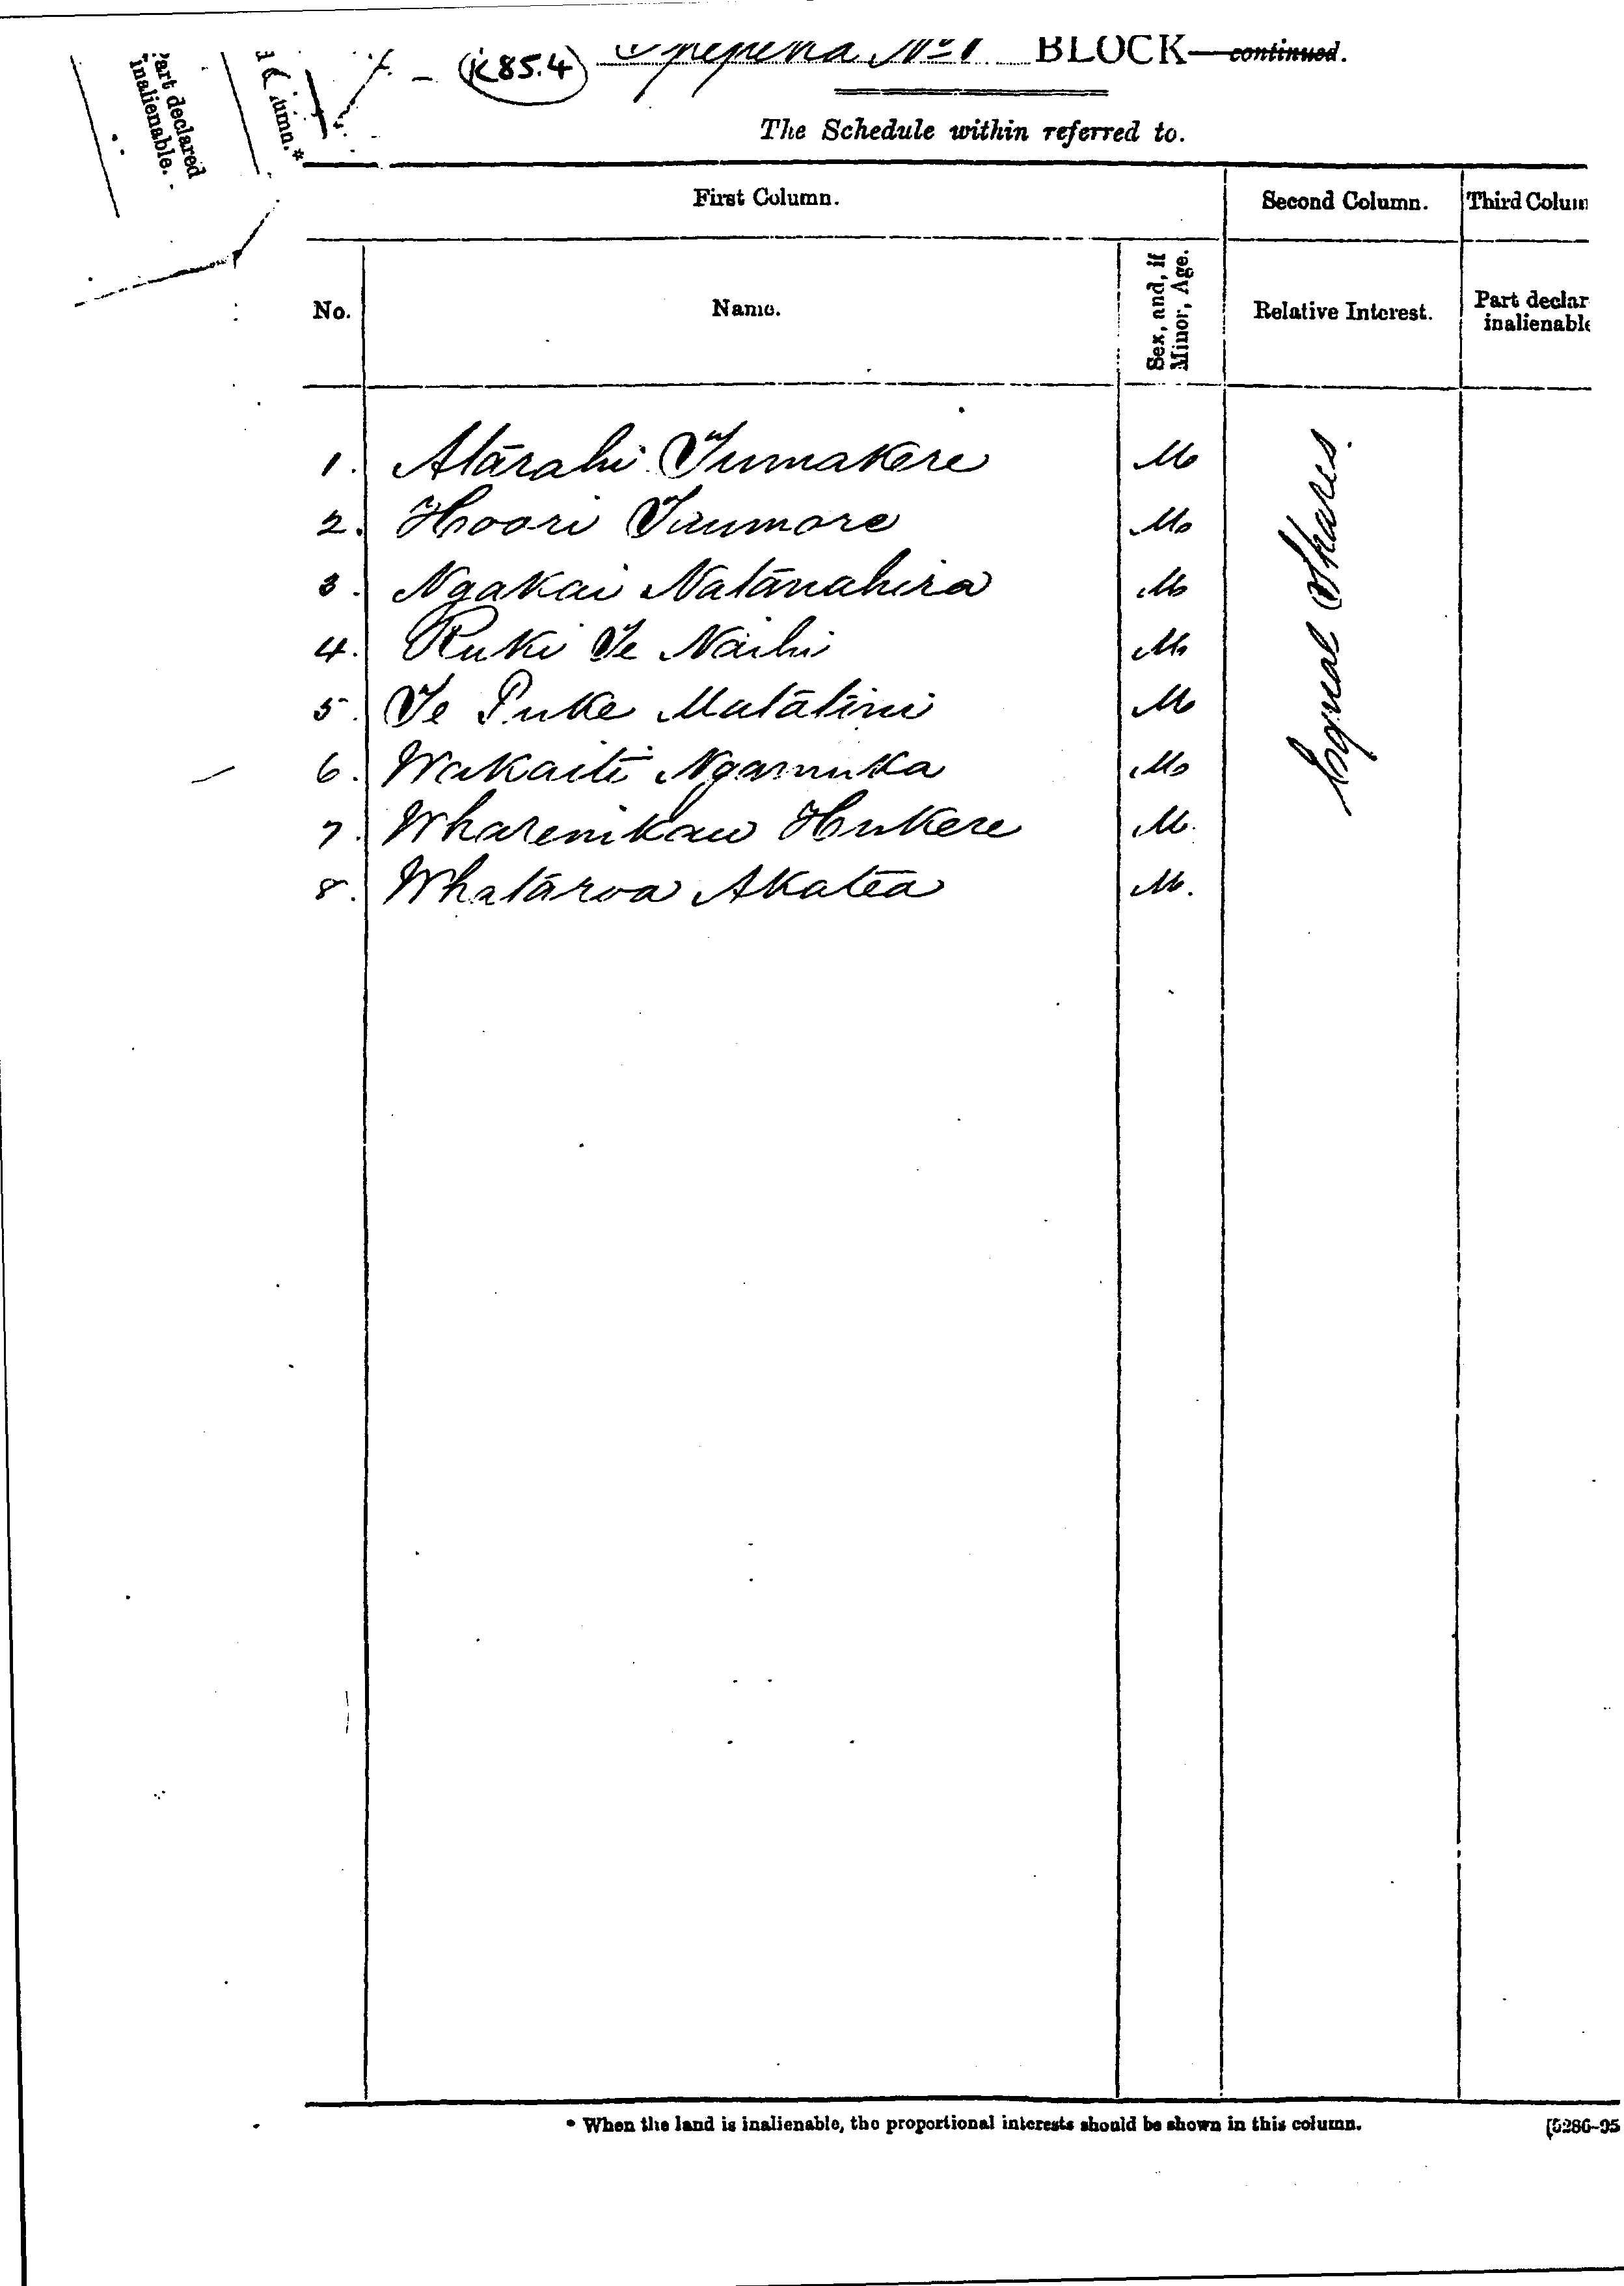 (K85.4) No 1 BLOCK—continued.
Part declared
inalienable.
umn.*
The Schedule within referred to.
First Column. Second Column. Third Colum
No. Name. Sex, and, if Minor, Age. Relative Interest. Part declar inalienable
1. Atārahi Tumakere M
2. Hoori Taumore M
3. Ngakai Natānahira M
4. Ruki Te Naihi M
5. Te Puke Matātini M
6. Wakaiti Ngamuka M
7. Wharenikau Hukere M.
8. Whatāroa Akatēa M.
Equal Shares.
* When the land is inalienable, the proportional interests should be shown in this column. [5286-95